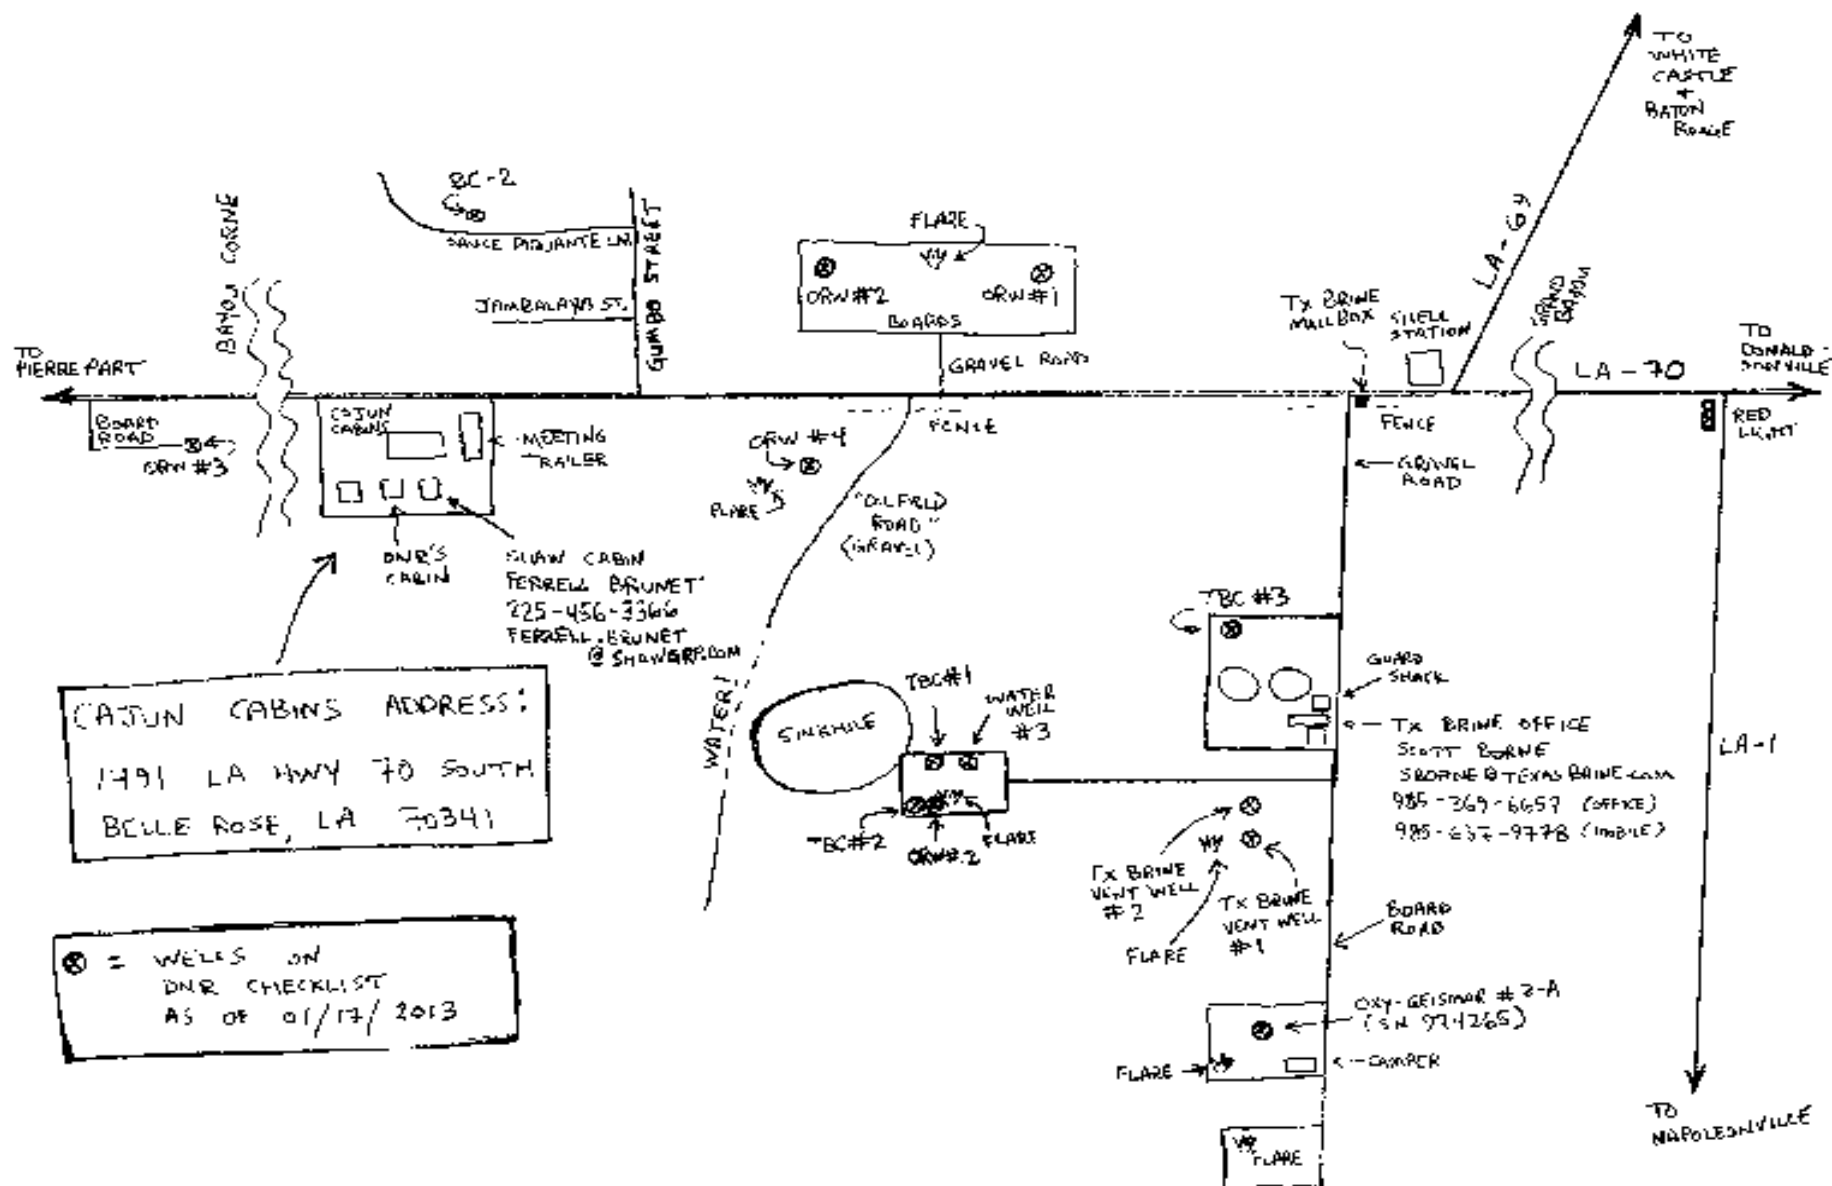 TO
WHITE
CASTLE
+
BATON
ROUGE
BC-2
SAUCE PIQUANTE LN.
JAMBALAYA ST.
GUMBO STREET
BAYOU CORNE
FLARE
ORW#2
ORW#1
BOARDS
GRAVEL ROAD
TX BRINE
MAILBOX
SHELL
STATION
LA-69
GRAND
BAYOU
LA-70
TO
DONALD-
SONVILLE
TO
PIERRE PART
BOARD
ROAD
ORW #3
CAJUN
CABINS
MEETING
TRAILER
DNR'S
CABIN
SHAW CABIN
FERRELL BRUNET
225-456-3366
FERRELL.BRUNET
@SHAWGRP.COM
ORW #4
FLARE
FENCE
"OILFIELD
ROAD"
(GRAVEL)
WATER!
FENCE
GRAVEL
ROAD
RED
LIGHT
CAJUN CABINS ADDRESS:
1491 LA HWY 70 SOUTH
BELLE ROSE, LA 70341
SINKHOLE
TBC#1
WATER
WELL
#3
TBC#2
FLARE
TBC #3
GUARD
SHACK
TX BRINE OFFICE
SCOTT BORNE
SBORNE@TEXASBRINE.COM
985-369-6657 (OFFICE)
985-637-9778 (MOBILE)
LA-1
TX BRINE
VENT WELL
#2
TX BRINE
VENT WELL
#1
FLARE
BOARD
ROAD
= WELLS ON
DNR CHECKLIST
AS OF 01/17/2013
OXY-GEISMAR #2-A
(SN 974265)
FLARE
CAMPER
FLARE
TO
NAPOLEONVILLE